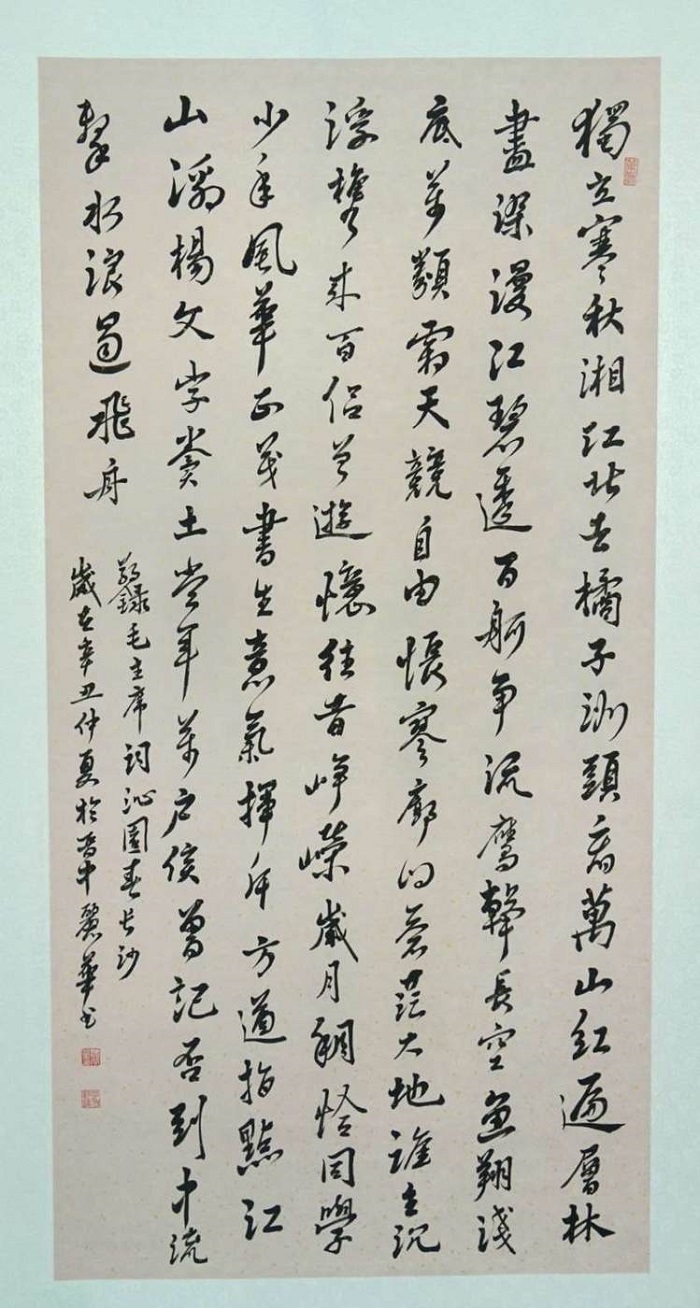 獨立寒秋湘江北去橘子洲頭看萬山紅遍層林
盡染漫江碧透百舸争流鹰擊長空魚翔浅
底萬類霜天競自由悵寥廓问蒼茫大地誰主沉
浮攜来百侣曾遊憶往昔崢嶸歲月稠恰同學
少年風華正茂書生意氣揮斥方遒指點江
山激揚文字糞土當年萬户侯曾記否到中流
擊水浪遏飛舟
敬録毛主席词沁園春长沙
歲在辛丑仲夏於晋中麗華书